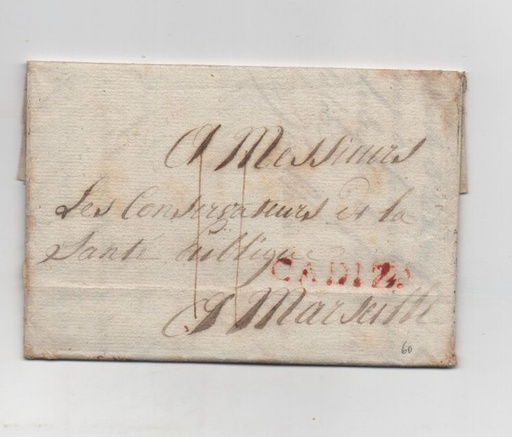 A Messieurs
Les Conservateurs de la
Santé publique
CADIZ
A Marseille
60